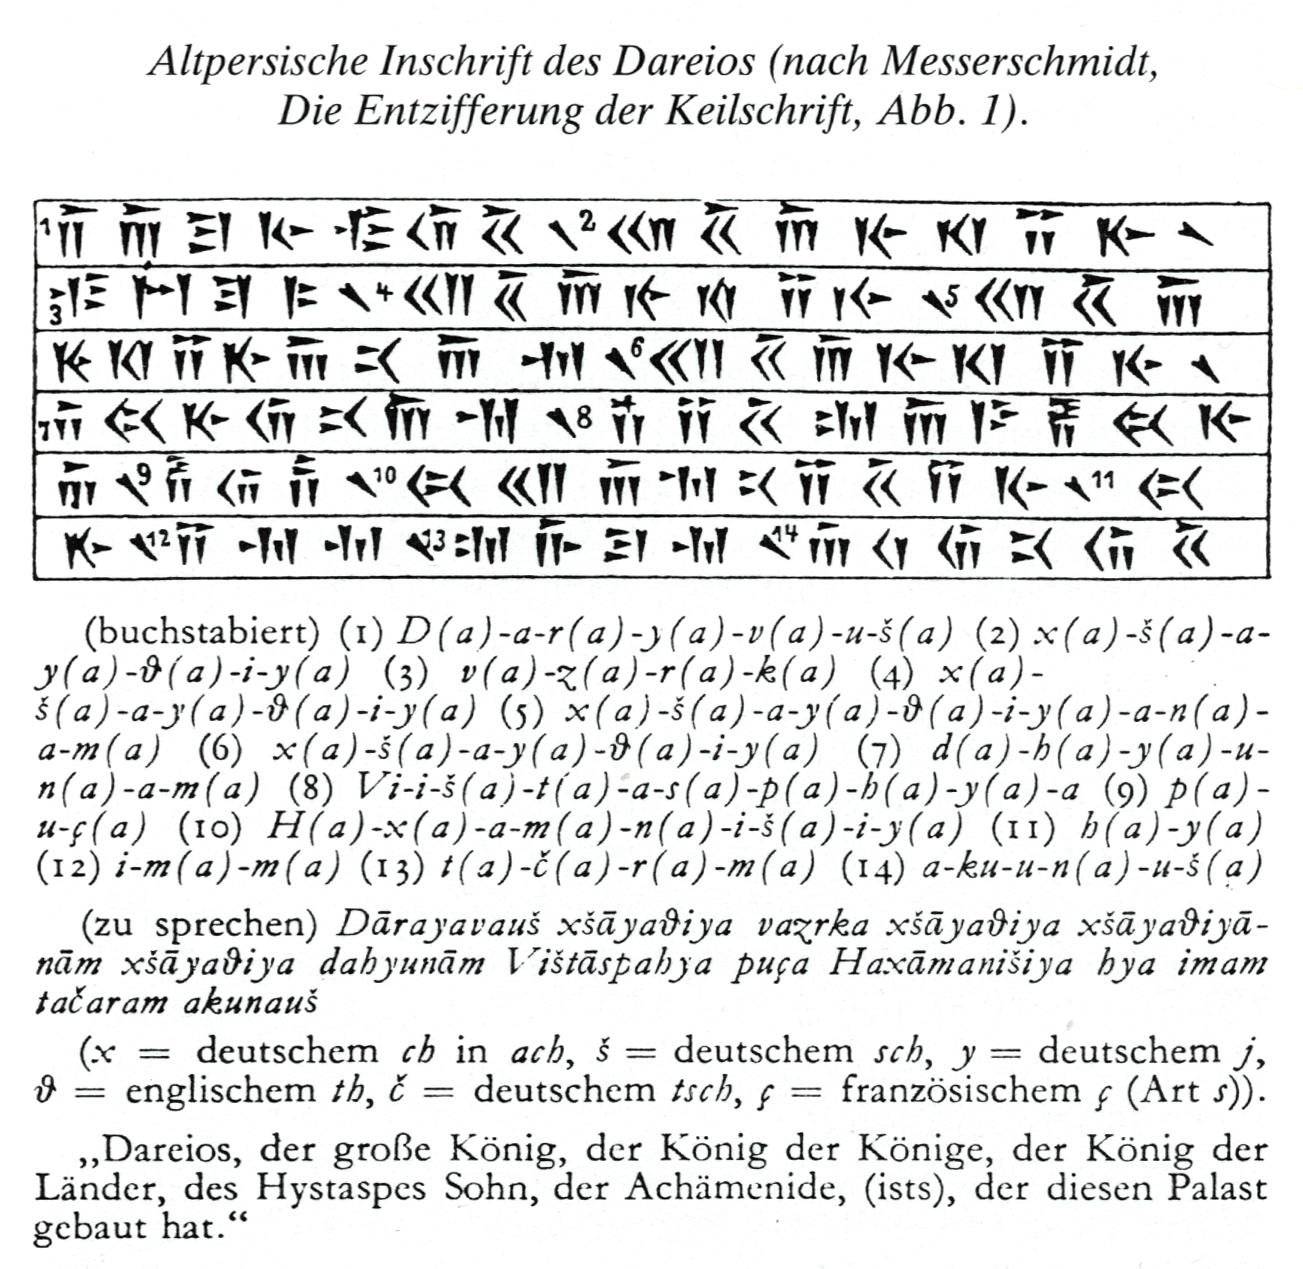 Altpersische Inschrift des Dareios (nach Messerschmidt,
Die Entzifferung der Keilschrift, Abb. 1).
1 𐎭 𐎠 𐎼 𐎹 𐎺 𐎢 𐏁 𐏐 2 𐎧 𐏁 𐎠 𐎹 𐎰 𐎡 𐎹 𐏐
3 𐎺 𐏀 𐎼 𐎣 𐏐 4 𐎧 𐏁 𐎠 𐎹 𐎰 𐎡 𐎹 𐏐 5 𐎧 𐏁 𐎠
𐎹 𐎰 𐎡 𐎹 𐎠 𐎴 𐎠 𐎶 𐏐 6 𐎧 𐏁 𐎠 𐎹 𐎰 𐎡 𐎹 𐏐
7 𐎭 𐏃 𐎹 𐎢 𐎴 𐎠 𐎶 𐏐 8 𐎻 𐎡 𐏁 𐎫 𐎠 𐎿 𐎱 𐏃 𐎹
𐎠 𐏐 9 𐎱 𐎢 𐏂 𐏐 10 𐏃 𐎧 𐎠 𐎶 𐎴 𐎡 𐏁 𐎡 𐎹 𐏐 11 𐏃
𐎹 𐏐 12 𐎡 𐎶 𐎶 𐏐 13 𐎫 𐎨 𐎼 𐎶 𐏐 14 𐎠 𐎤 𐎢 𐎴 𐎢 𐏁
(buchstabiert) (1) D(a)-a-r(a)-y(a)-v(a)-u-š(a) (2) x(a)-š(a)-a-
y(a)-ϑ(a)-i-y(a) (3) v(a)-z(a)-r(a)-k(a) (4) x(a)-
š(a)-a-y(a)-ϑ(a)-i-y(a) (5) x(a)-š(a)-a-y(a)-ϑ(a)-i-y(a)-a-n(a)-
a-m(a) (6) x(a)-š(a)-a-y(a)-ϑ(a)-i-y(a) (7) d(a)-h(a)-y(a)-u-
n(a)-a-m(a) (8) Vi-i-š(a)-t(a)-a-s(a)-p(a)-h(a)-y(a)-a (9) p(a)-
u-ç(a) (10) H(a)-x(a)-a-m(a)-n(a)-i-š(a)-i-y(a) (11) h(a)-y(a)
(12) i-m(a)-m(a) (13) t(a)-č(a)-r(a)-m(a) (14) a-ku-u-n(a)-u-š(a)
(zu sprechen) Dārayavauš xšāyaϑiya vazrka xšāyaϑiya xšāyaϑiyā-
nām xšāyaϑiya dahyunām Vištāspahya puça Haxāmanišiya hya imam
tačaram akunauš
(x = deutschem ch in ach, š = deutschem sch, y = deutschem j,
ϑ = englischem th, č = deutschem tsch, ç = französischem ç (Art s)).
„Dareios, der große König, der König der Könige, der König der
Länder, des Hystaspes Sohn, der Achämenide, (ists), der diesen Palast
gebaut hat.“